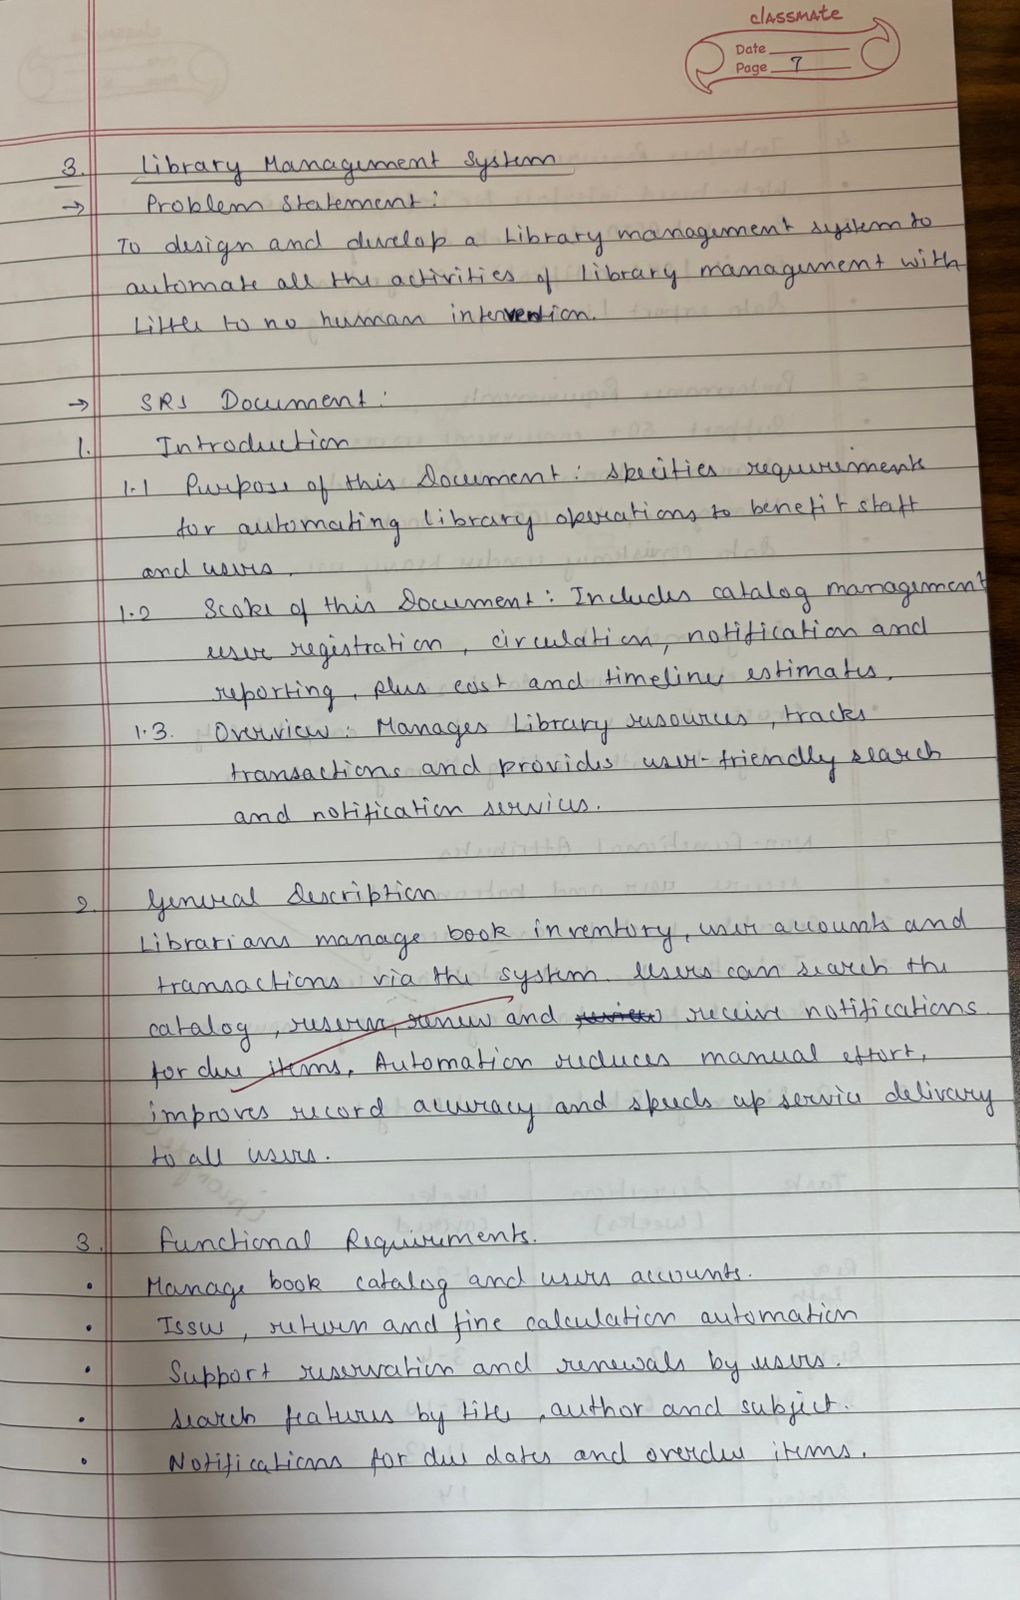 classmate
Date
Page 7
3. Library Management System
→ Problem Statement:
To design and develop a Library management system to
automate all the activities of library management with
little to no human intervention.
→ SRS Document:
1. Introduction
1.1 Purpose of this Document: specifies requirements
for automating library operations to benefit staff
and users.
1.2 Scope of this Document: Includes catalog management
user registration, circulation, notification and
reporting, plus cost and timeline estimates.
1.3. Overview: Manages Library resources, tracks
transactions and provides user-friendly search
and notification services.
2. General Description
Librarians manage book inventory, user accounts and
transactions via the system. Users can search the
catalog, reserve, renew and receive notifications
for due items. Automation reduces manual effort,
improves record accuracy and speeds up service delivary
to all users.
3. Functional Requirements.
• Manage book catalog and users accounts.
• Issue, return and fine calculation automation
• Support reservation and renewals by users.
• Search features by title, author and subject.
• Notifications for due dates and overdue items.